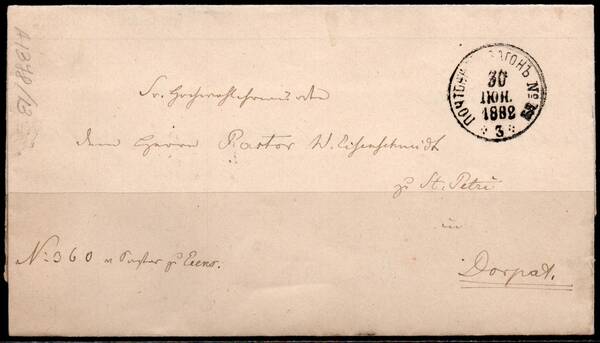 ПОЧТОВЫЙ ВАГОНЪ №
30
ІЮН.
1892
3
Sr. Hochwohlehrwürden
dem Herrn Pastor W. Eisenschmidt
zu St. Petri
in
Dorpat.
No 360 Pastor zu